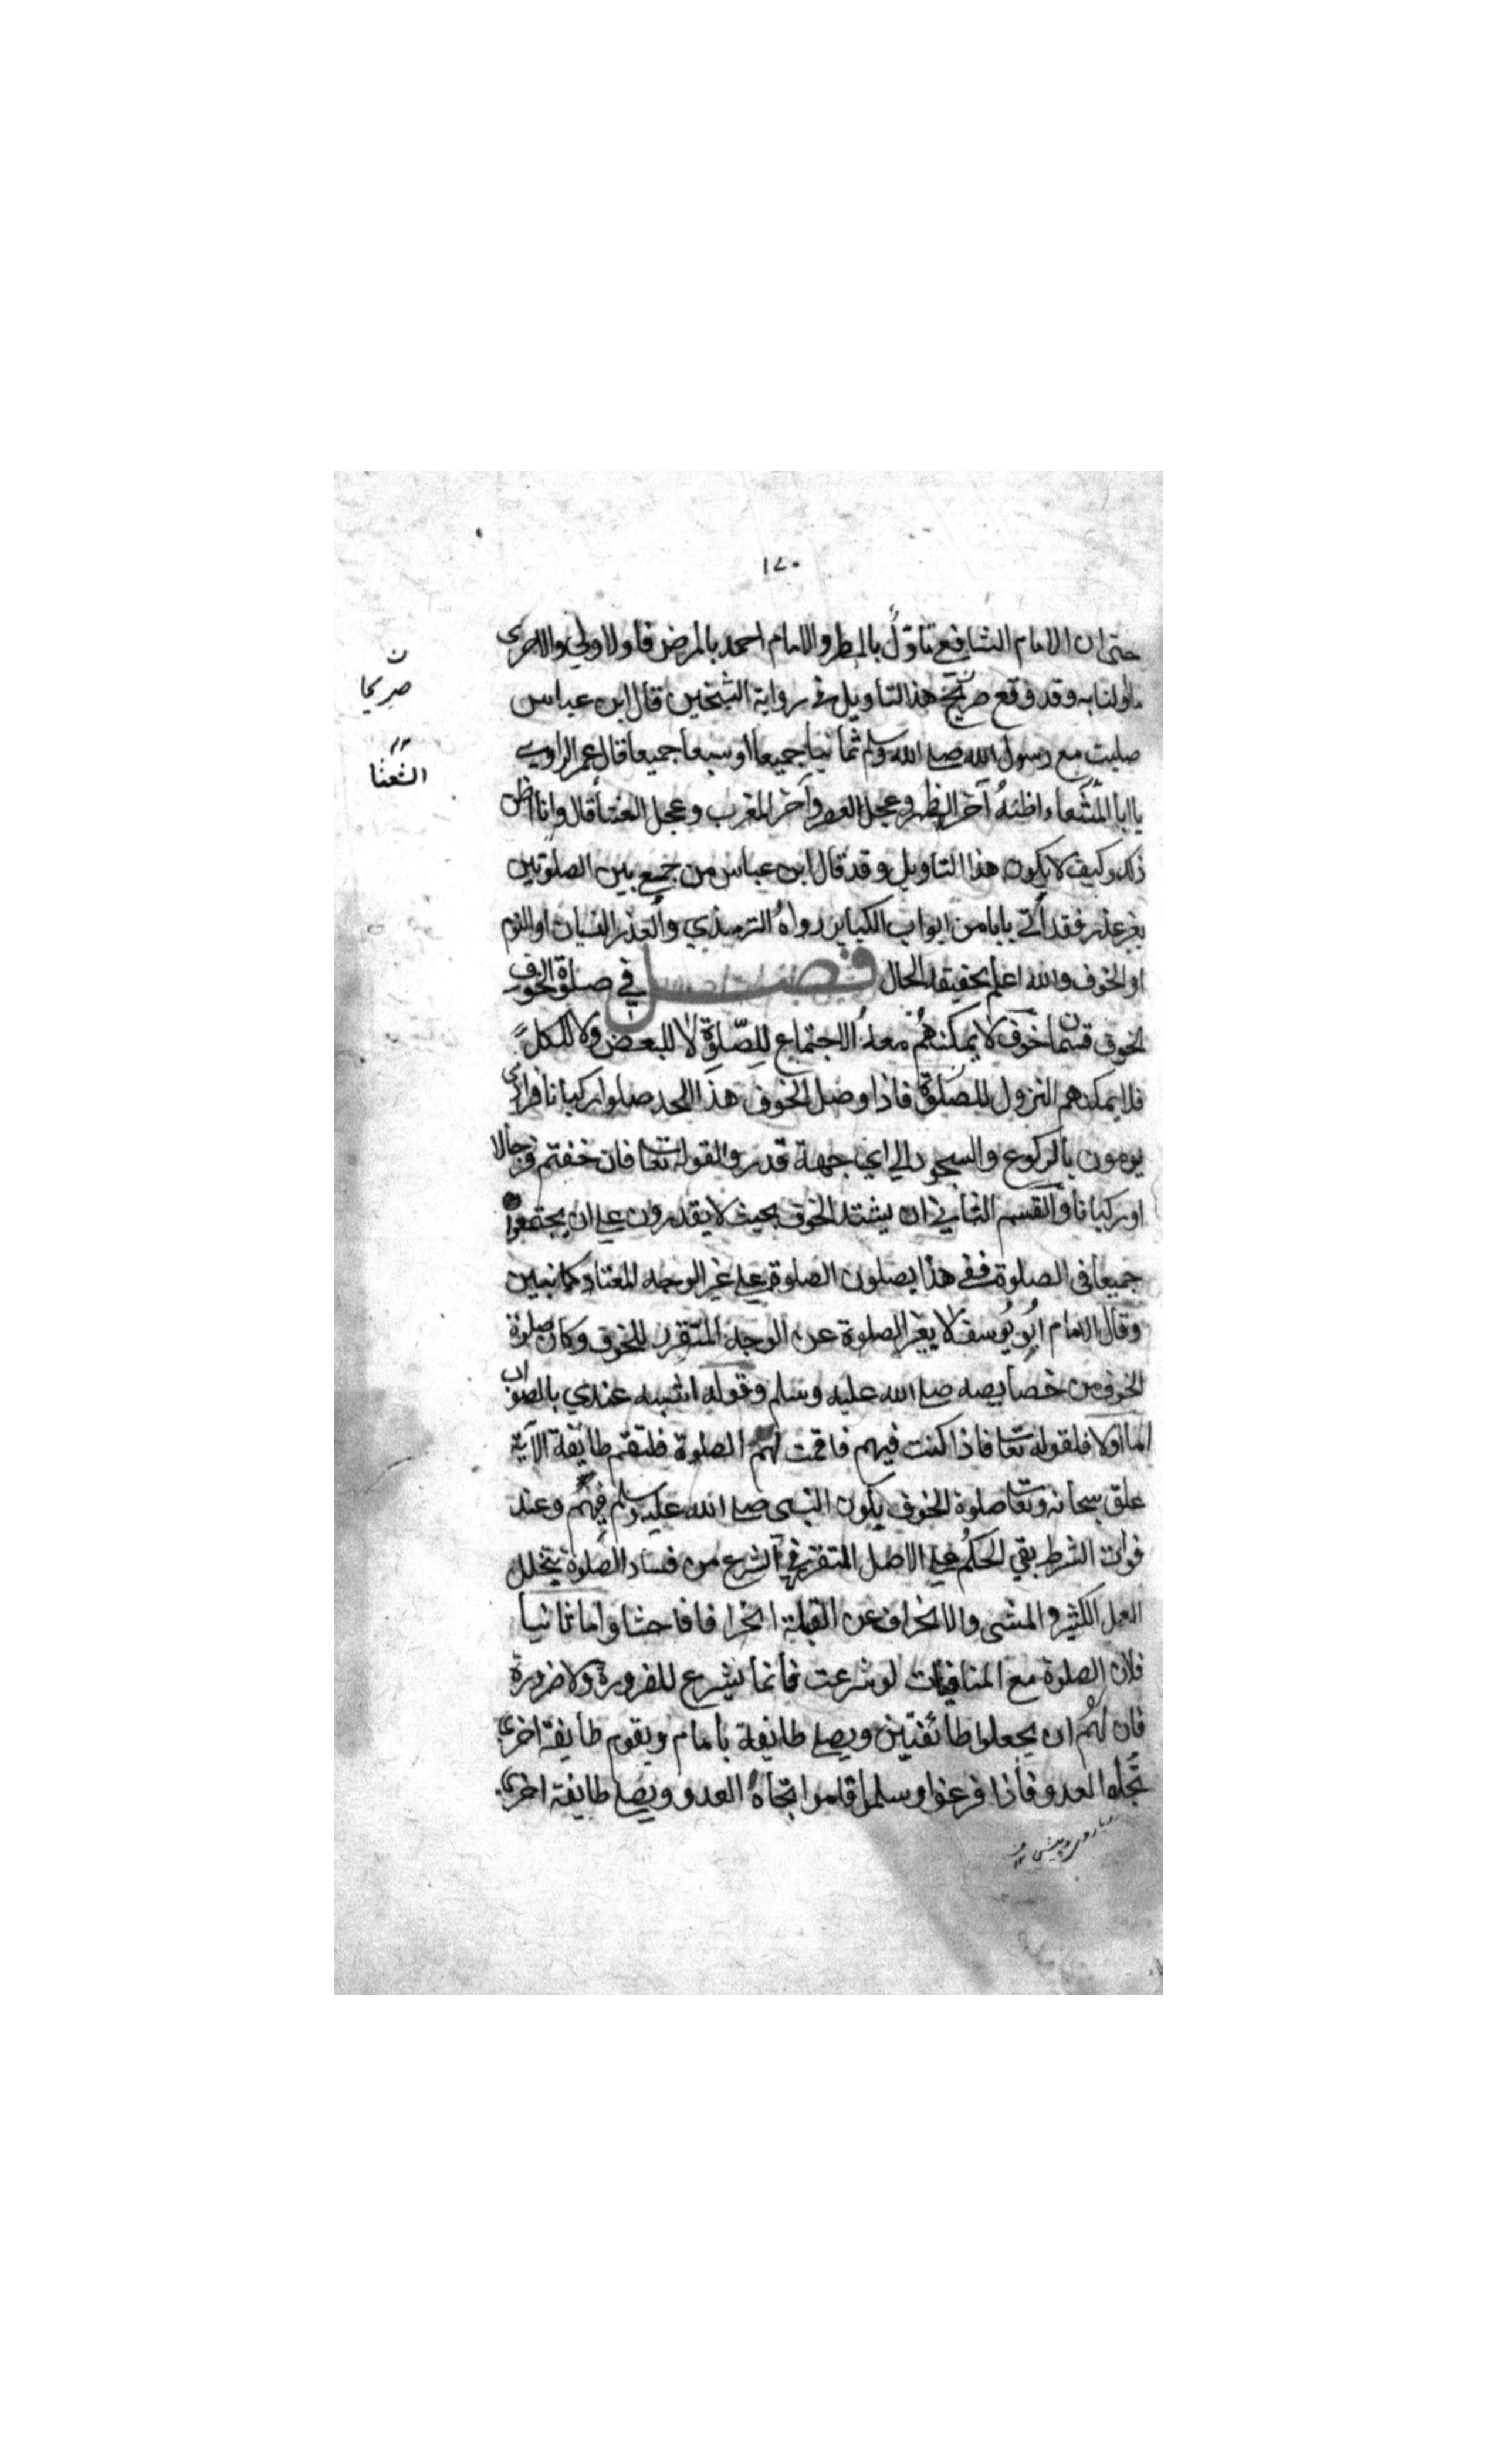 ١٧٠
حتى ان الامام الشافعي تاوّل بالمطر والامام احمد بالمرض فاولا ولي والاحرى
ماولنا به وقد وقع صريح هذا التاويل في رواية الشيخين قال ابن عباس
صليت مع رسول الله صلى الله وسلم ثمانيا جميعا او سبعا جميعا قال عمر الراوي
يا ابا المشعاء اظنهُ آخر الظهر وعجل العصر وآخر المغرب وعجل العشا قال وانا اظن
ذلك وكيف لا يكون هذا التاويل وقد قال ابن عباس من جمع بين الصلوتين
بغير عذر فقد أتى بابا من ابواب الكباير رواهُ الترمذي والعذر النسيان او النوم
او الخوف والله اعلم بحقيقة الحال فصل في صلوة الخوف
الخوف قسمان خوف لا يمكنهُم معهُ الاجتماع للصّلوةِ لا للبعض ولا للكل
فلا يمكنهم النزول للصلوة فاذا وصل الخوف هذا الحد صلوا ركبانا فرادى
يومون بالركوع والسجود الى اي جهة قدروا لقوله تعا فان خفتم فرجالا
او ركبانا والقسم الثاني ان يشتد الخوف بحيث لا يقدرون على ان يجتمعوا
جميعا في الصلوة ففي هذا يصلون الصلوة على غير الوجه المعتاد كما نبين
وقال الامام ابُو يُوسف لا يغير الصلوة عن الوجه المتقرر للخوف وكان صلوة
الخوف من خصايصه صلى الله عليه وسلم وقوله اشبه عندي بالصواب
اما اولا فلقوله تعا فاذا كنت فيهم فاقمت لهم الصلوة فلتقم طايفة الآية
علق سبحانه وتعا صلوة الخوف بكون النبى صلى الله عليه وسلم فيهُم وعند
فوات الشرط بقي الحكمُ على الاصل المتقرر في الشرع من فساد الصلوة بتخلل
العمل الكثير والمشى والانحراف عن القبلة انحرافا فاحشا واما ثانيا
فلان الصلوة مع المنافيات لو شرعت فانما يشرع للضرورة ولا ضرورة
فان لهُم ان يجعلوا طائفتين ويصلى طايفة بامام ويقوم طايفة اخرى
تجاه العدو فاذا فرغوا وسلموا قاموا تجاهُ العدو ويصلى طايفة اخرى
ن
صريحا
الشعثا